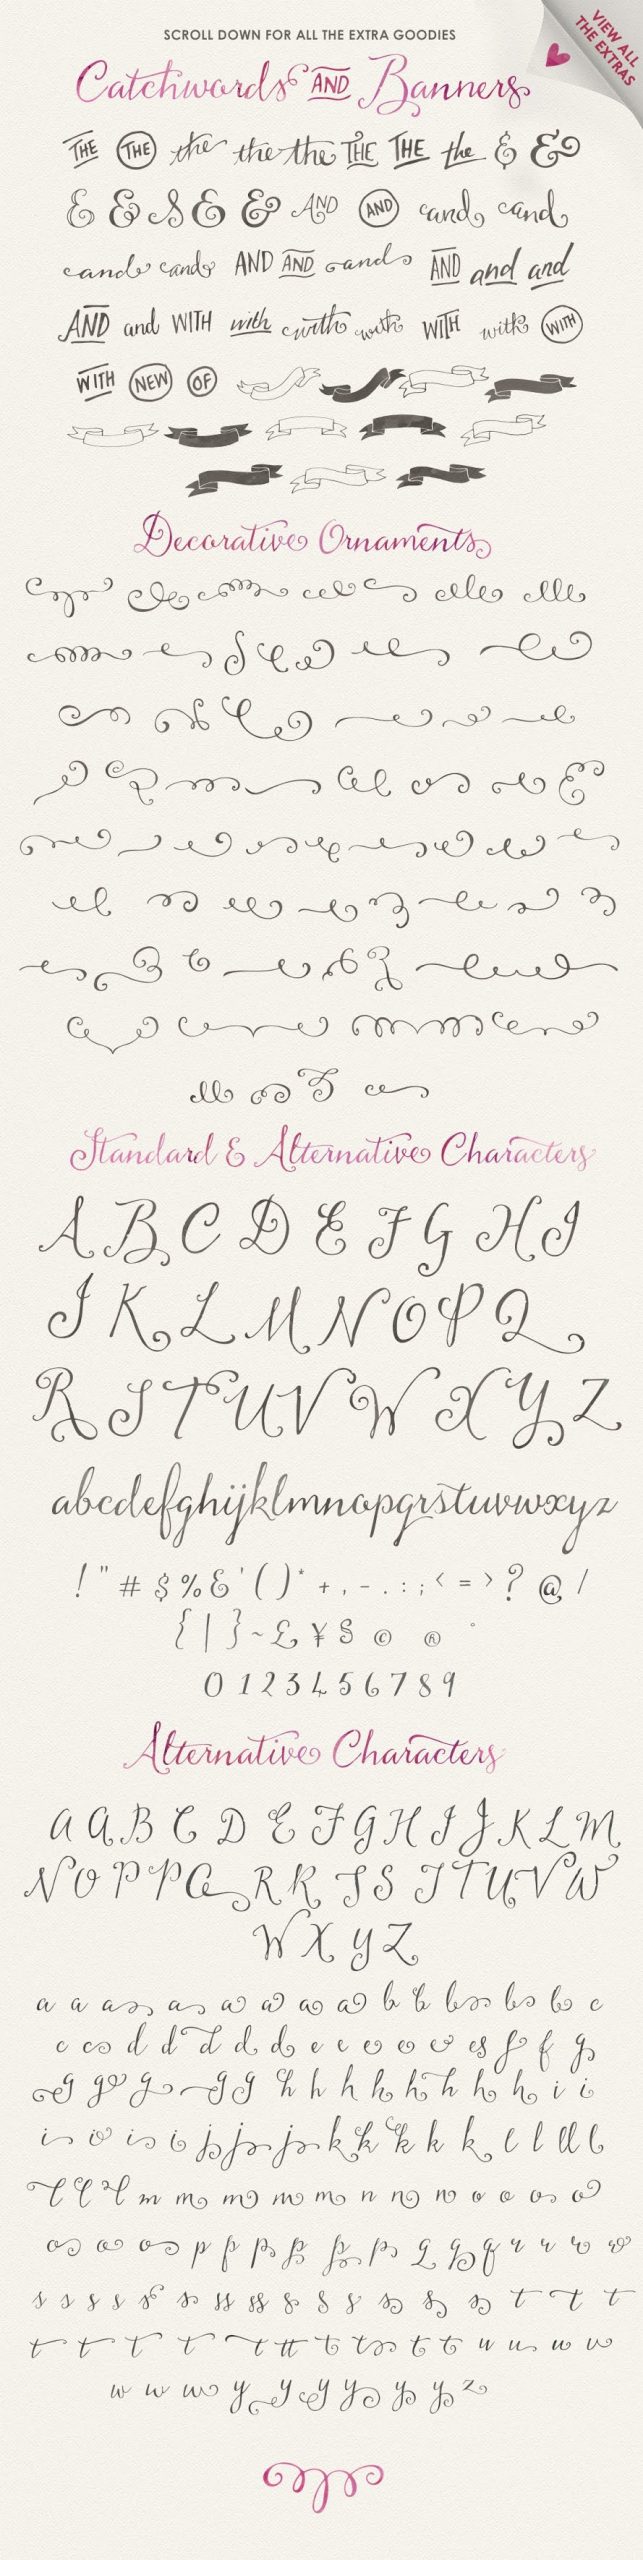 SCROLL DOWN FOR ALL THE EXTRA GOODIES
VIEW ALL
THE EXTRAS
Catchwords AND Banners
THE THE the the the THE THE the & &
& & & & & AND AND and and
and and AND AND and AND and and
AND and WITH with with with WITH with WITH
WITH NEW OF
Decorative Ornaments
Standard & Alternative Characters
A B C D E F G H I
J K L M N O P Q
R S T U V W X Y Z
abcdefghijklmnopqrstuvwxyz
! " # $ % & ' ( ) * + , - . : ; < = > ? @ /
{ | } ~ £ ¥ § © ® °
0 1 2 3 4 5 6 7 8 9
Alternative Characters
A A B C D E F G H I J K L M
N O P P Q R R S S T T U V W
W X Y Z
a a a a a a a a b b b b b c
c c d d d d d e e e e e es f f g
g g g g g h h h h h h h h i i
i i i i j j j k k k k k l l ll l
l l l m m m m m n n n o o o o
o o o p p p p p p q q q r r r r
s s s s s s ss ss s s s s s s t t t
t t t t t tt t t t t u u u v
w w w y y y y y y z